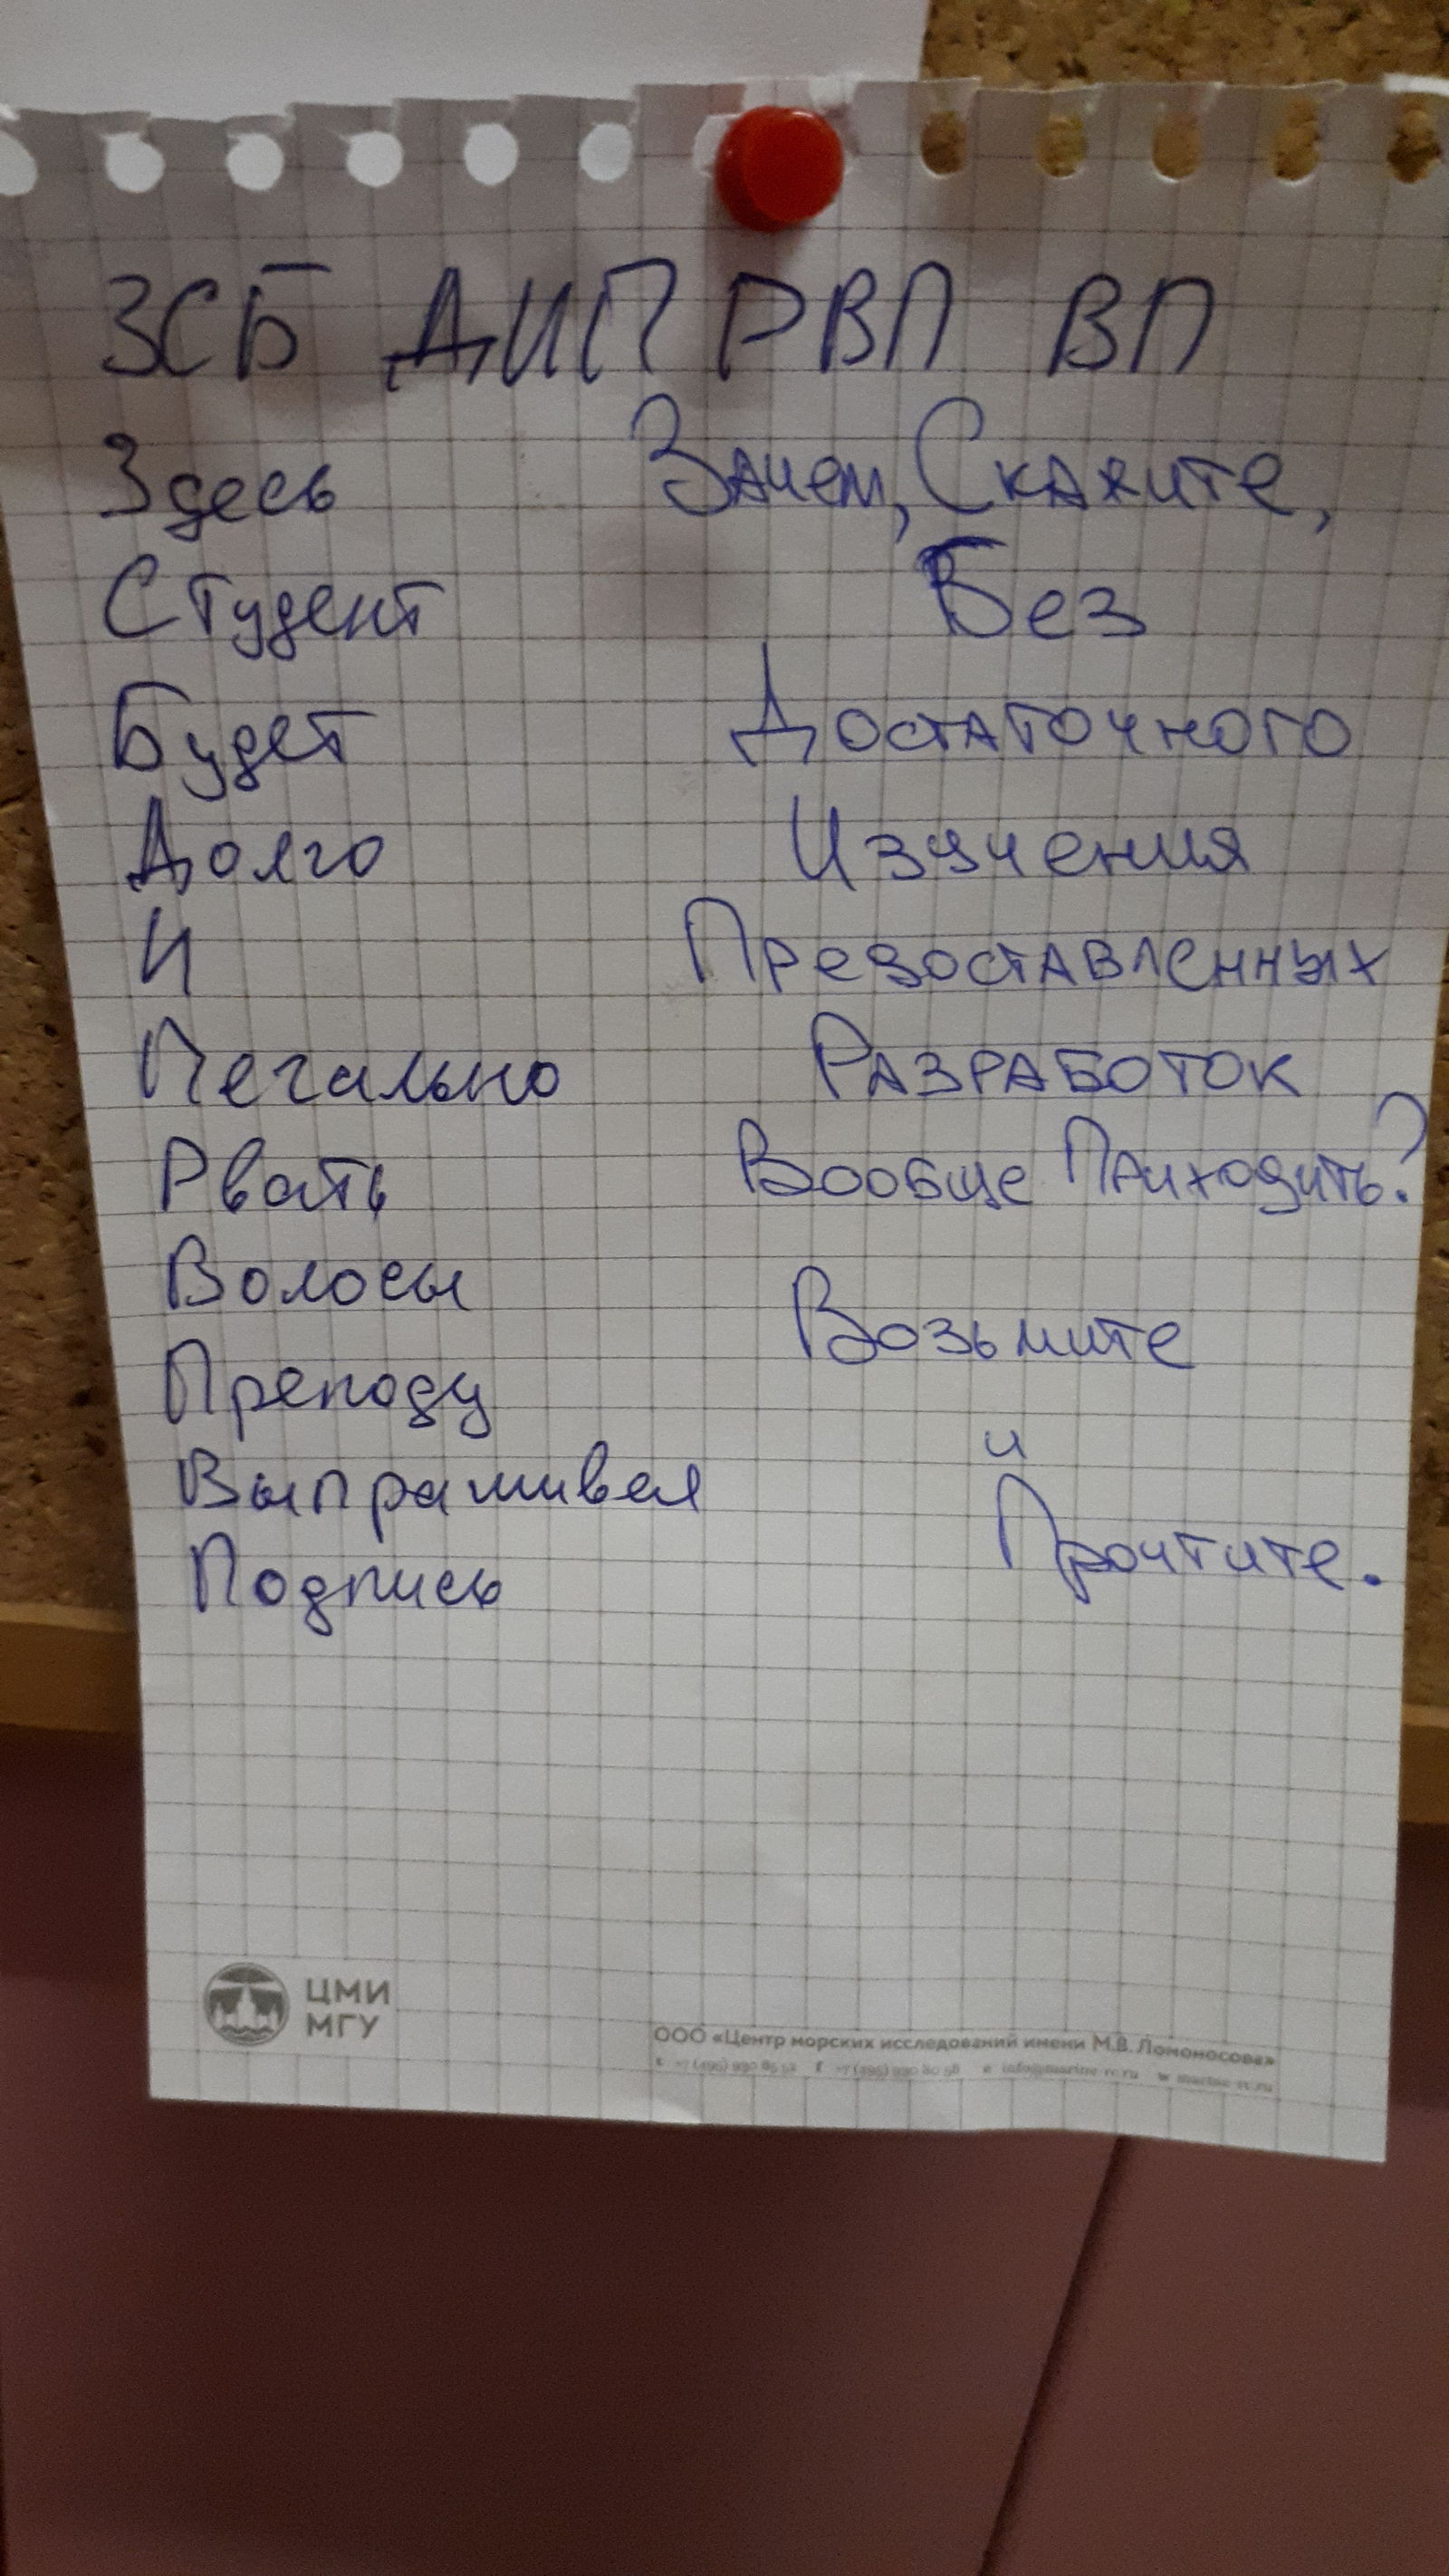 ЗСБ ДИП РВП ВП
Здесь
Студент
Будет
Долго
И
Печально
Рвать
Волосы
Преподу
Выпрашивая
Подпись
Зачем, Скажите,
Без
Достаточного
Изучения
Предоставленных
Разработок
Вообще Приходить?
Возьмите
и
Прочтите.
ЦМИ
МГУ
ООО «Центр морских исследований имени М.В. Ломоносова»